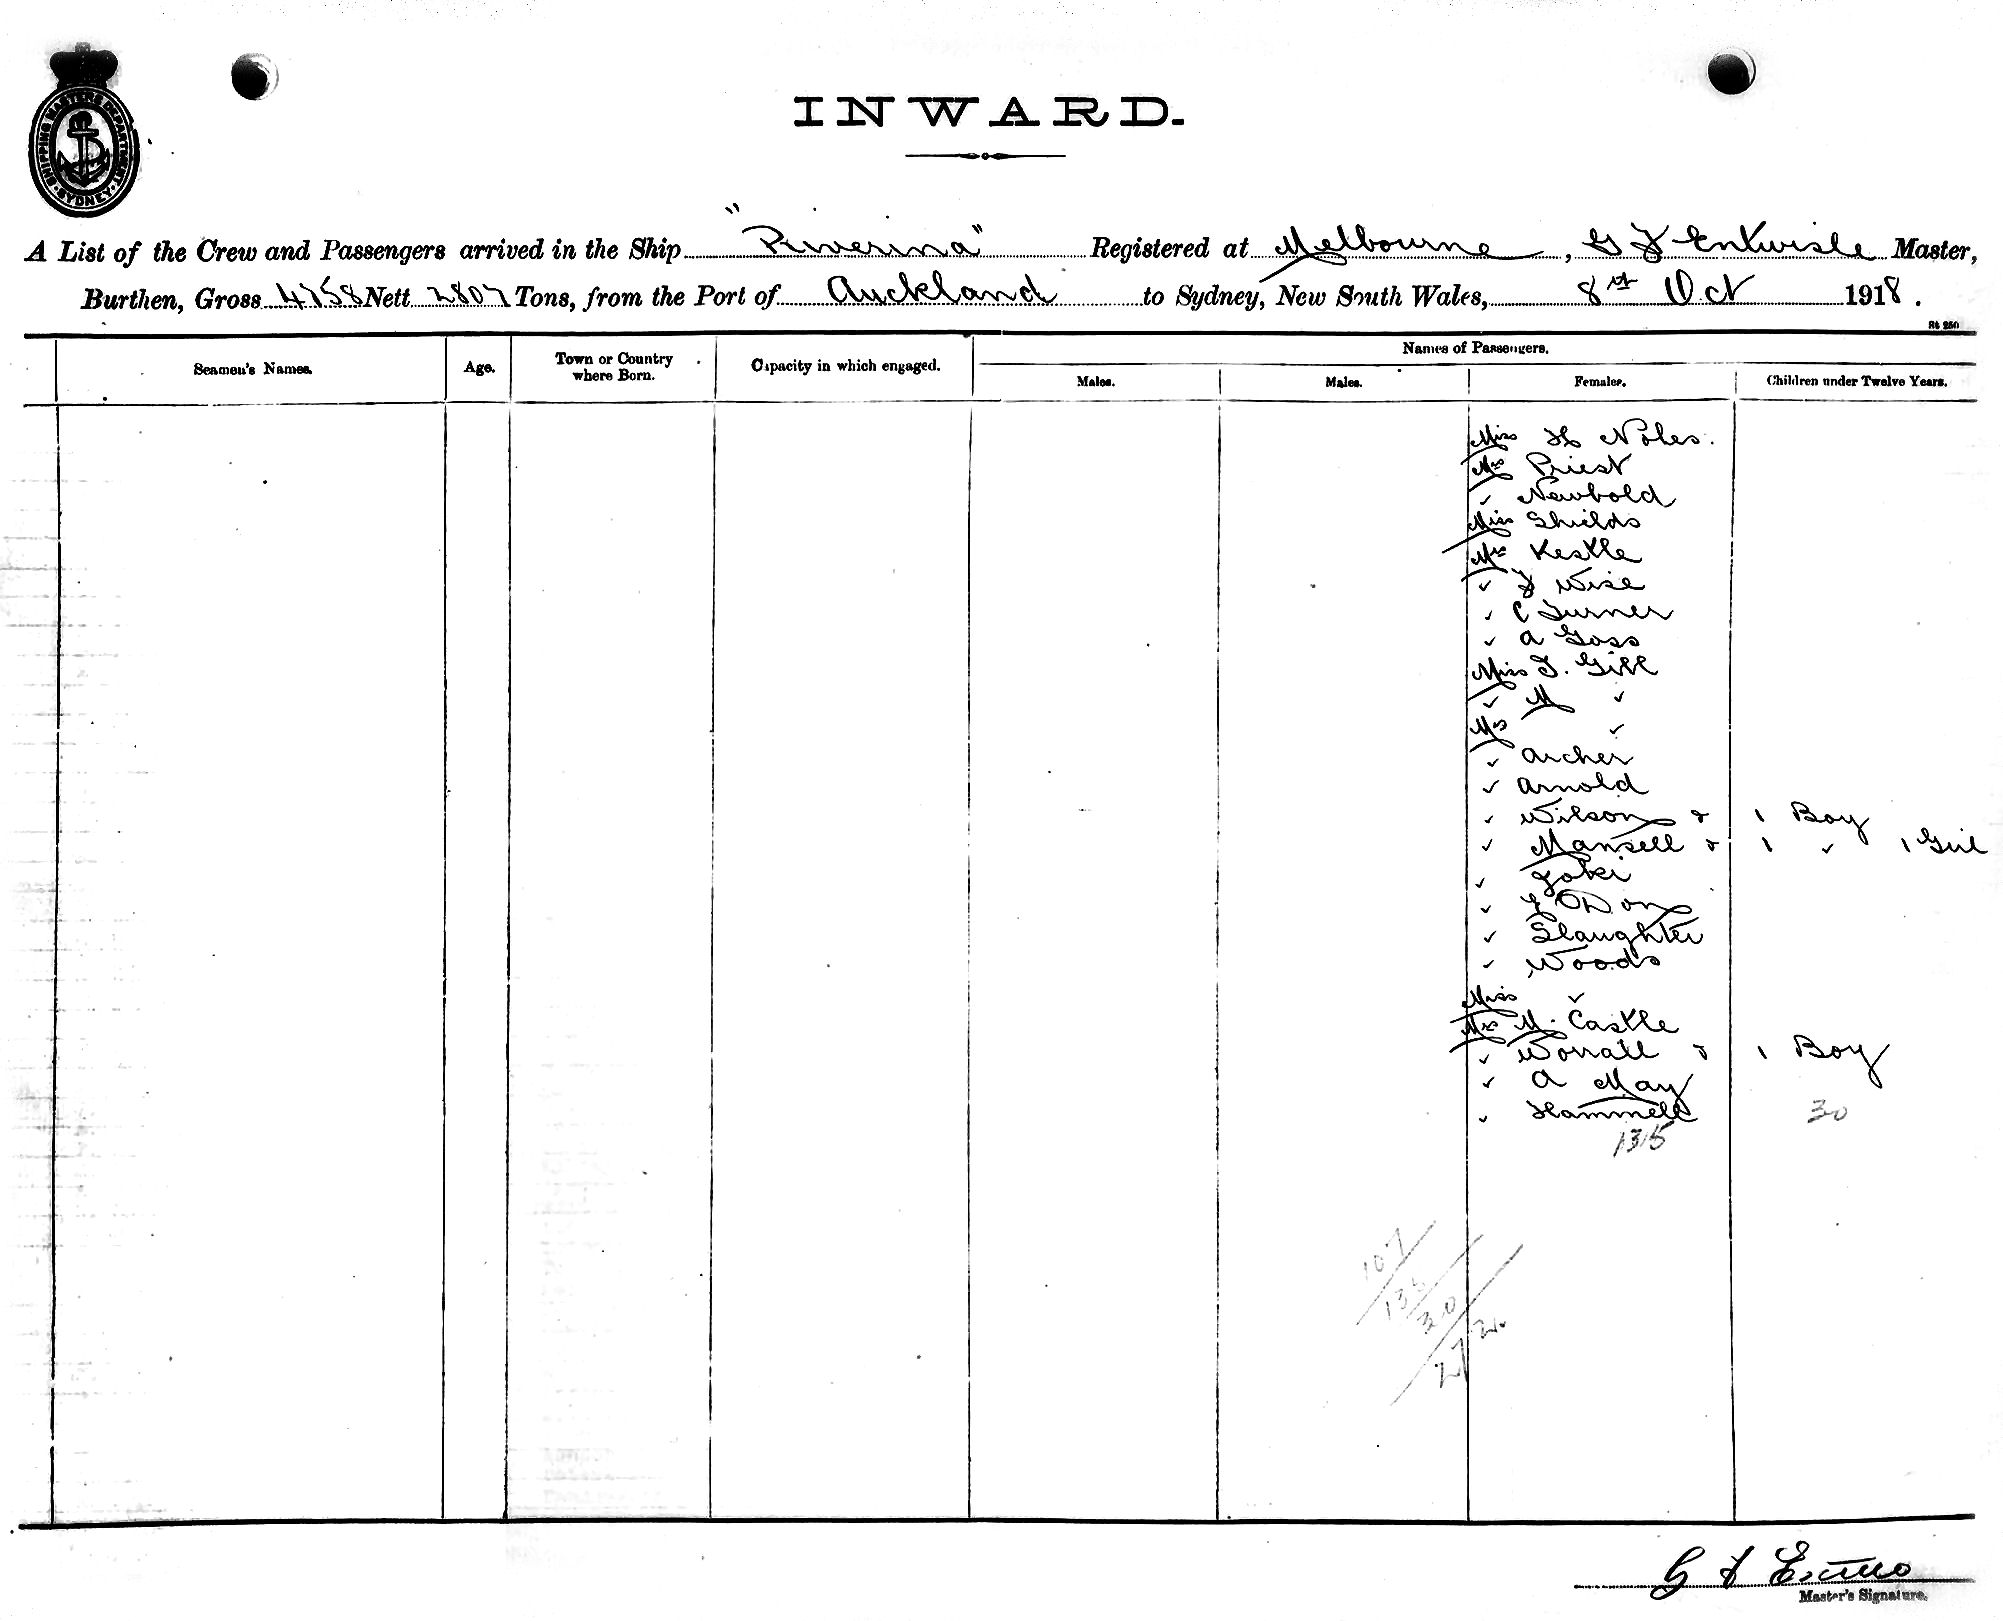 SHIPPING MASTERS DEPARTMENT
SYDNEY
INWARD.
A List of the Crew and Passengers arrived in the Ship "Riverina" Registered at Melbourne, G J Entwisle Master,
Burthen, Gross 4758 Nett 2807 Tons, from the Port of Auckland to Sydney, New South Wales, 8th Oct 1918.
Rt 250
Names of Passengers.
Seamen's Names. Age. Town or Country where Born. Capacity in which engaged. Males. Males. Females. Children under Twelve Years.
Miss H Noles.
Mrs Priest
✓ Newbold
Miss Shields
Mrs Kestle
✓ J Wise
✓ C Turner
✓ A Goss
Miss I. Gill
✓ M ✓
Mrs ✓
✓ Archer
✓ Arnold
✓ Wilson & 1 Boy
✓ Mansell & 1 ✓ 1 Girl
✓
✓
✓ Slaughter
✓ Woods
Miss ✓
Mrs M. Castle
✓ Worrall & 1 Boy
✓ A May
✓ Hammell 30
135
107
135
30
272
G J
Master's Signature.